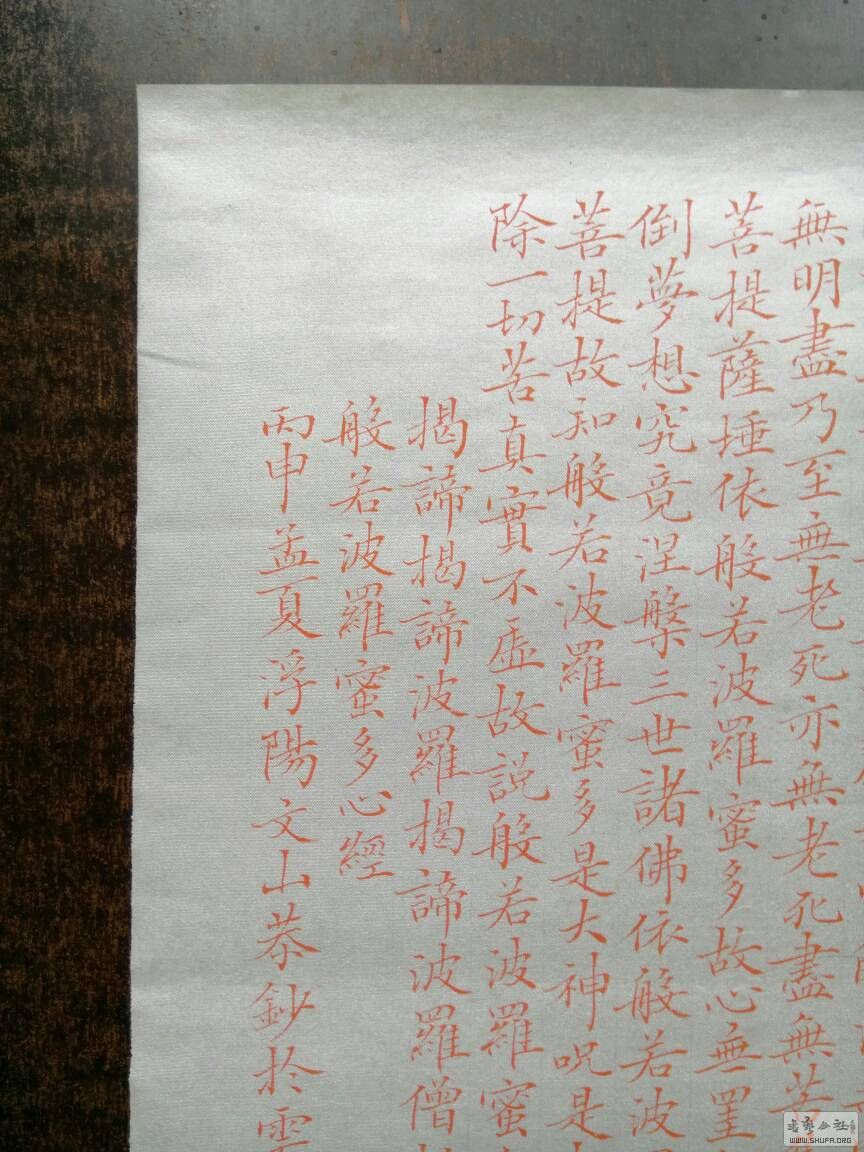 無明盡乃至無老死亦無老死盡無苦
菩提薩埵依般若波羅蜜多故心無罣
倒夢想究竟涅槃三世諸佛依般若波
菩提故知般若波羅蜜多是大神呪是
除一切苦真實不虛故說般若波羅蜜
揭諦揭諦波羅揭諦波羅僧
般若波羅蜜多心經
丙申孟夏浮陽文山恭鈔於雲
WWW.SHUFA.ORG